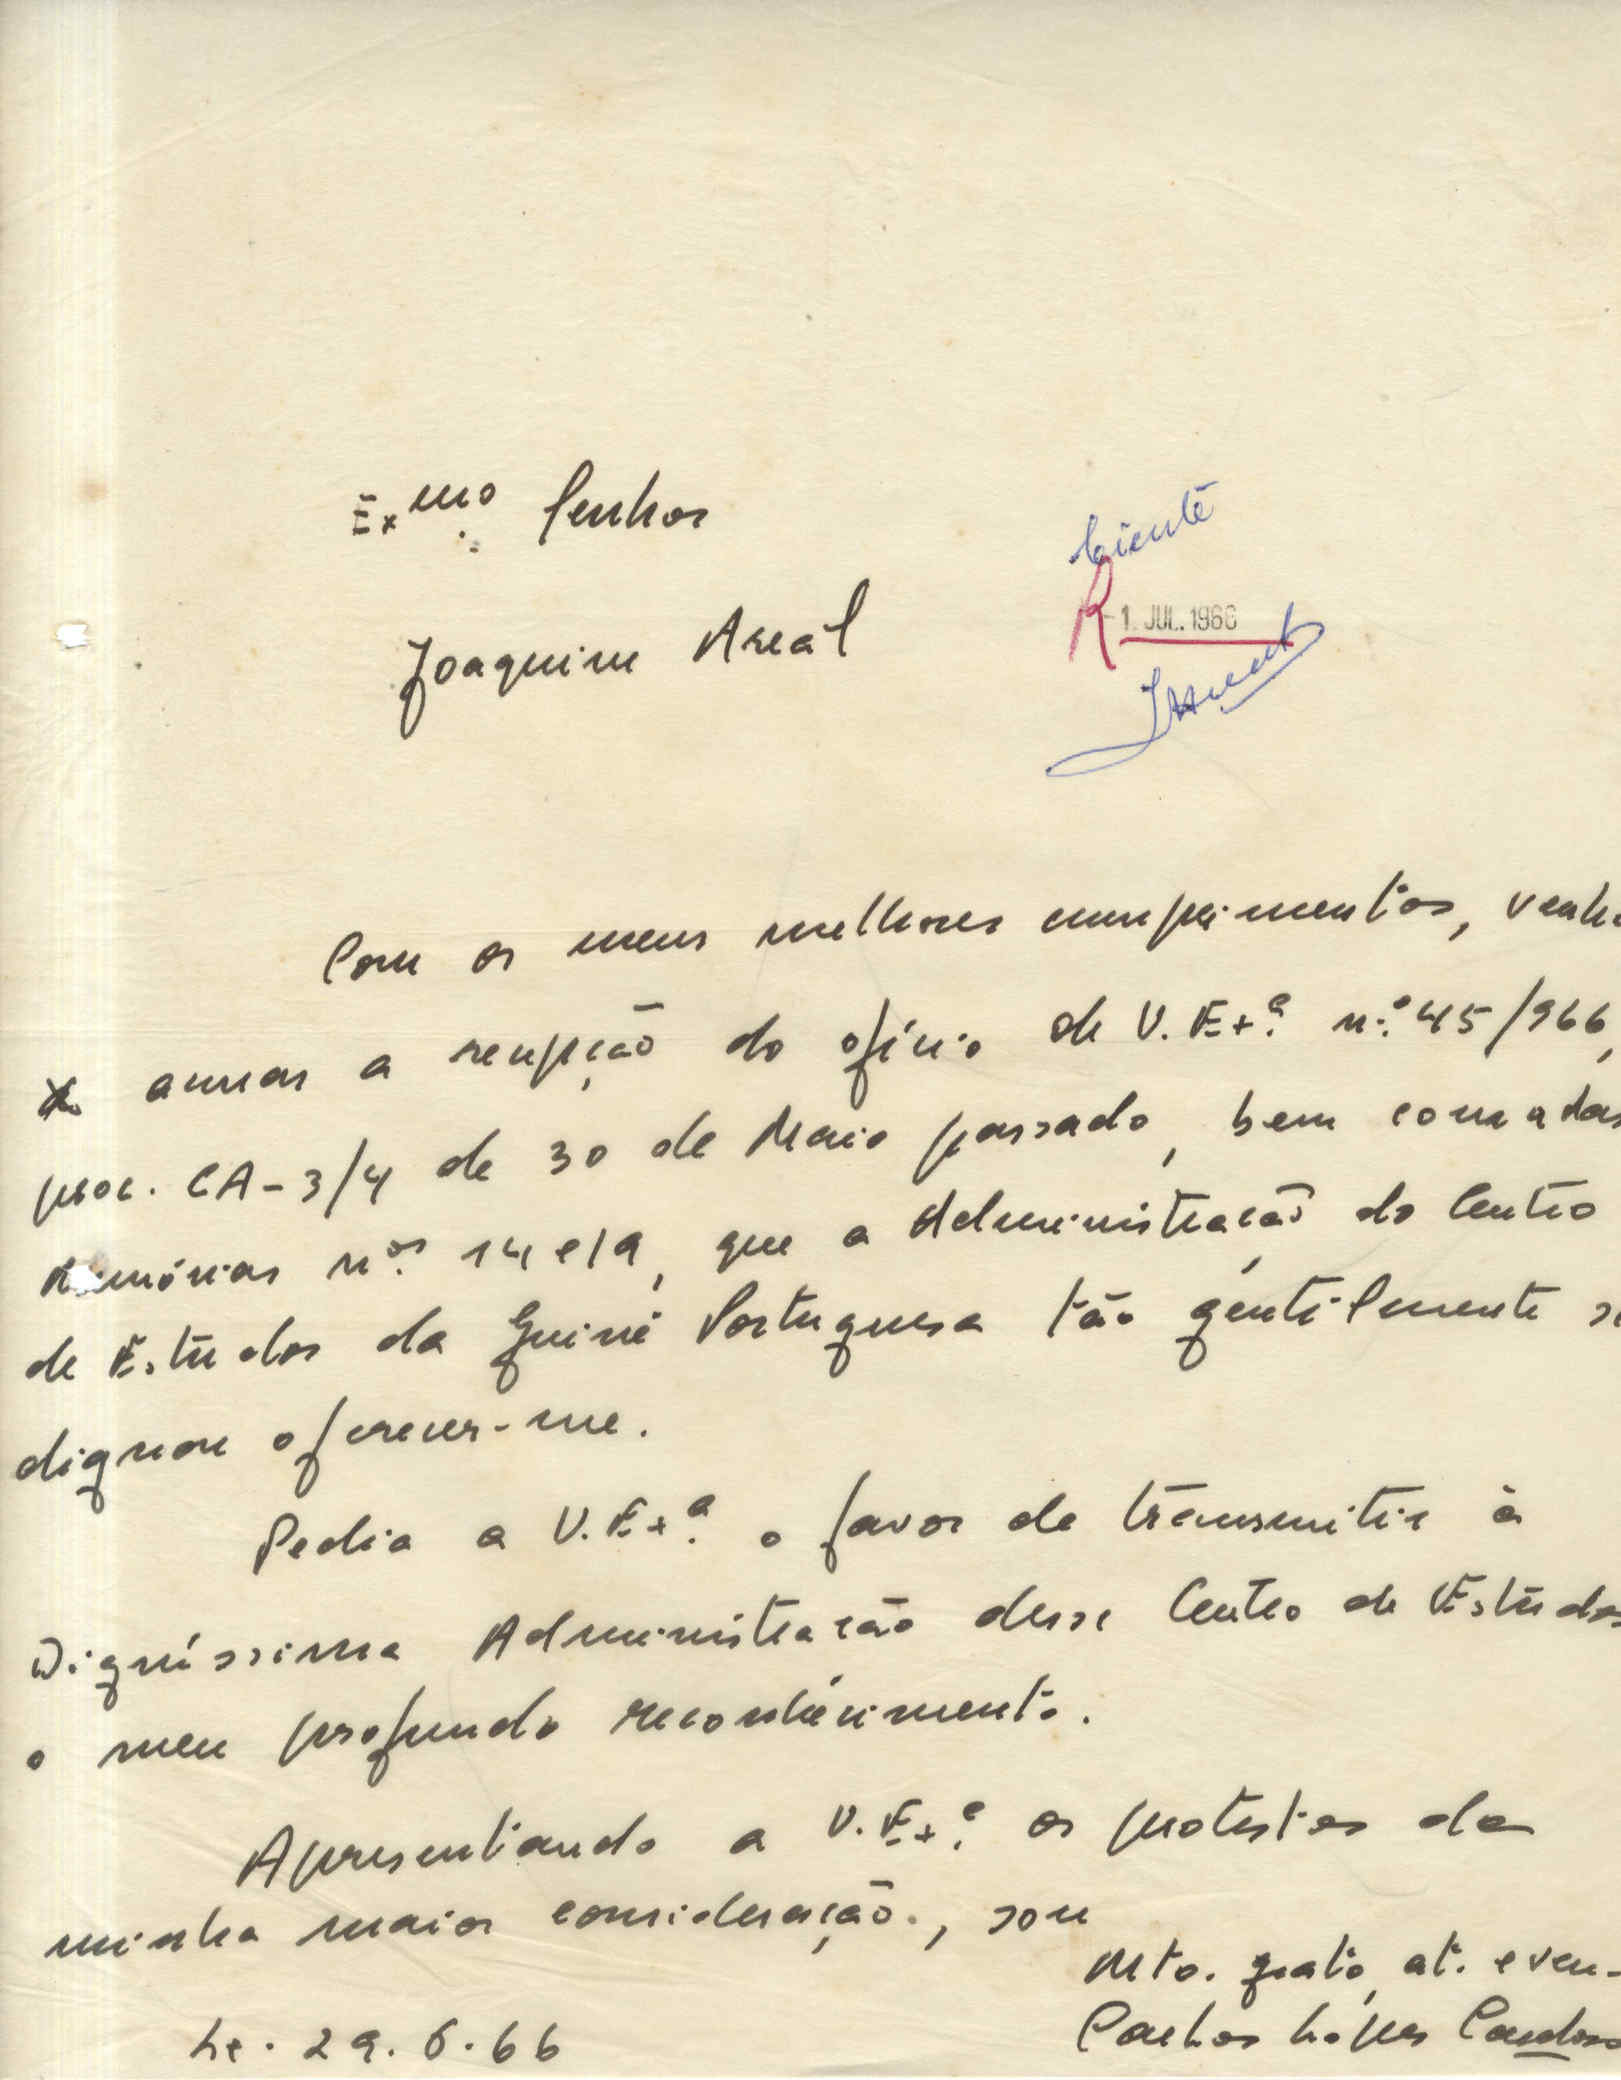 Ex.mo Senhor
Ciente
R -1. JUL. 1966
Joaquim Areal
Com os meus melhores cumprimentos, venho
acusar a recepção do ofício de V. Ex.ª n.º 45/966,
proc. CA-3/4 de 30 de Maio passado, bem como das
Memórias n.os 14 e 19, que a Administração do Centro
de Estudos da Guiné Portuguesa tão gentilmente se
dignou oferecer-me.
Pedia a V. Ex.ª o favor de transmitir à
Digníssima Administração desse Centro de Estudos
o meu profundo reconhecimento.
Apresentando a V. Ex.ª os protestos da
minha maior consideração., sou
Mto. grato, at. e ven.
Lx. 29.6.66
Carlos Lopes Cardoso